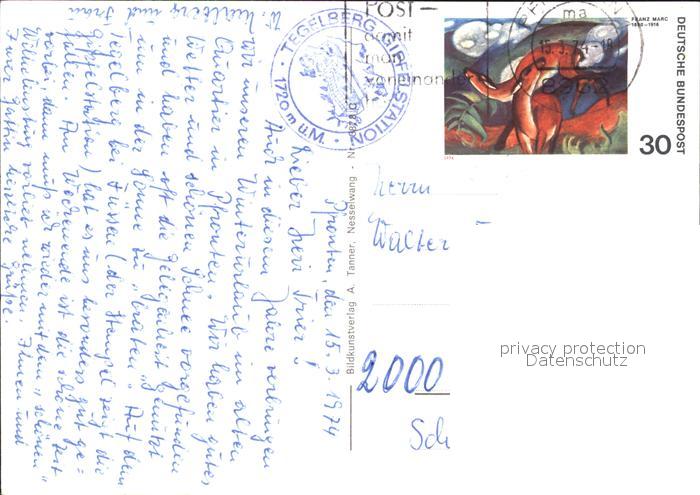 Pfronten, den 15.3.1974
Lieber Herr Trier!
Auch in diesem Jahre verbringen
wir unseren Winterurlaub im alten
Quartier in Pfronten. Wir haben gutes
Wetter und schönen Schnee vorgefunden
und haben oft die Gelegenheit genutzt
uns in der Sonne zu "braten". Auf dem
Tegelberg bei Füssen (der Stempel zeigt die
Gipfelstation) hat es uns besonders gut ge=
fallen. Am Wochenende ist die schöne Zeit
vorbei, dann muß ich wieder mit dem "schönen"
Wilhelmsburg vorlieb nehmen. Ihnen und
Ihrer Gattin herzliche Grüße
und Frau
TEGELBERG-GIPFELSTATION
1720 m ü.M.
POST-
damit
man
voneinander
ma
15.3.74-18
FRANZ MARC
1880-1916
DEUTSCHE BUNDESPOST
30
1974
Bildkunstverlag A. Tanner, Nesselwang
Herrn
Walter
2000
Sch
privacy protection
Datenschutz